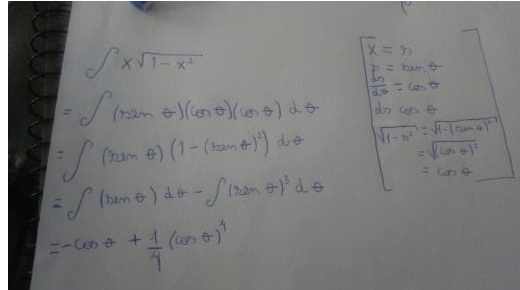 ∫ x√1-x²
= ∫ (sen θ)(cos θ)(cos θ) dθ
= ∫ (sen θ) (1-(sen θ)²) dθ
= ∫ (sen θ) dθ - ∫(sen θ)³ dθ
= -cos θ + 1/4 (cos θ)⁴
x = s
s = sen θ
ds/dθ = cos θ
ds cos θ
√1-s² = √1-(sen θ)²
= √(cos θ)²
= cos θ